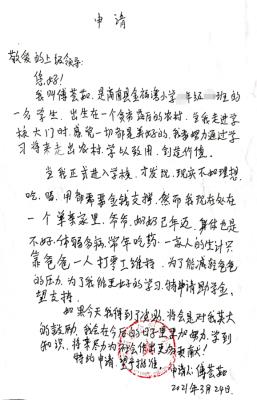 申请
敬爱的上级领导:
您好!
我叫傅 是南县金 小学 年级 班的
一名学生,出生在一个 的农村,当我走进学
校大门时,感觉一切都是美好的,我要努力通过学
习将来走出农村,学以致用,创造价值。
当我真正进入学校,才发现,现实不如理想
吃、喝、用都需要金钱支撑,然而我现在处在
一个单亲家里,爷爷、奶奶已年迈,身体也是
不好,体弱多病,常年吃药,一家人的生计只
靠爸爸一人打零工维持,为了能减轻爸爸
的压力,为了我能更好的学习,特申请助学金,
望支持。
如果今天我得到了 ,将会是对我莫大
的鼓励,我会在今后的日子里更加努力,学到
知识,将来尽力为社会作出更 贡献!
特此申请,望予批准
申请人:傅
2021年3月24日